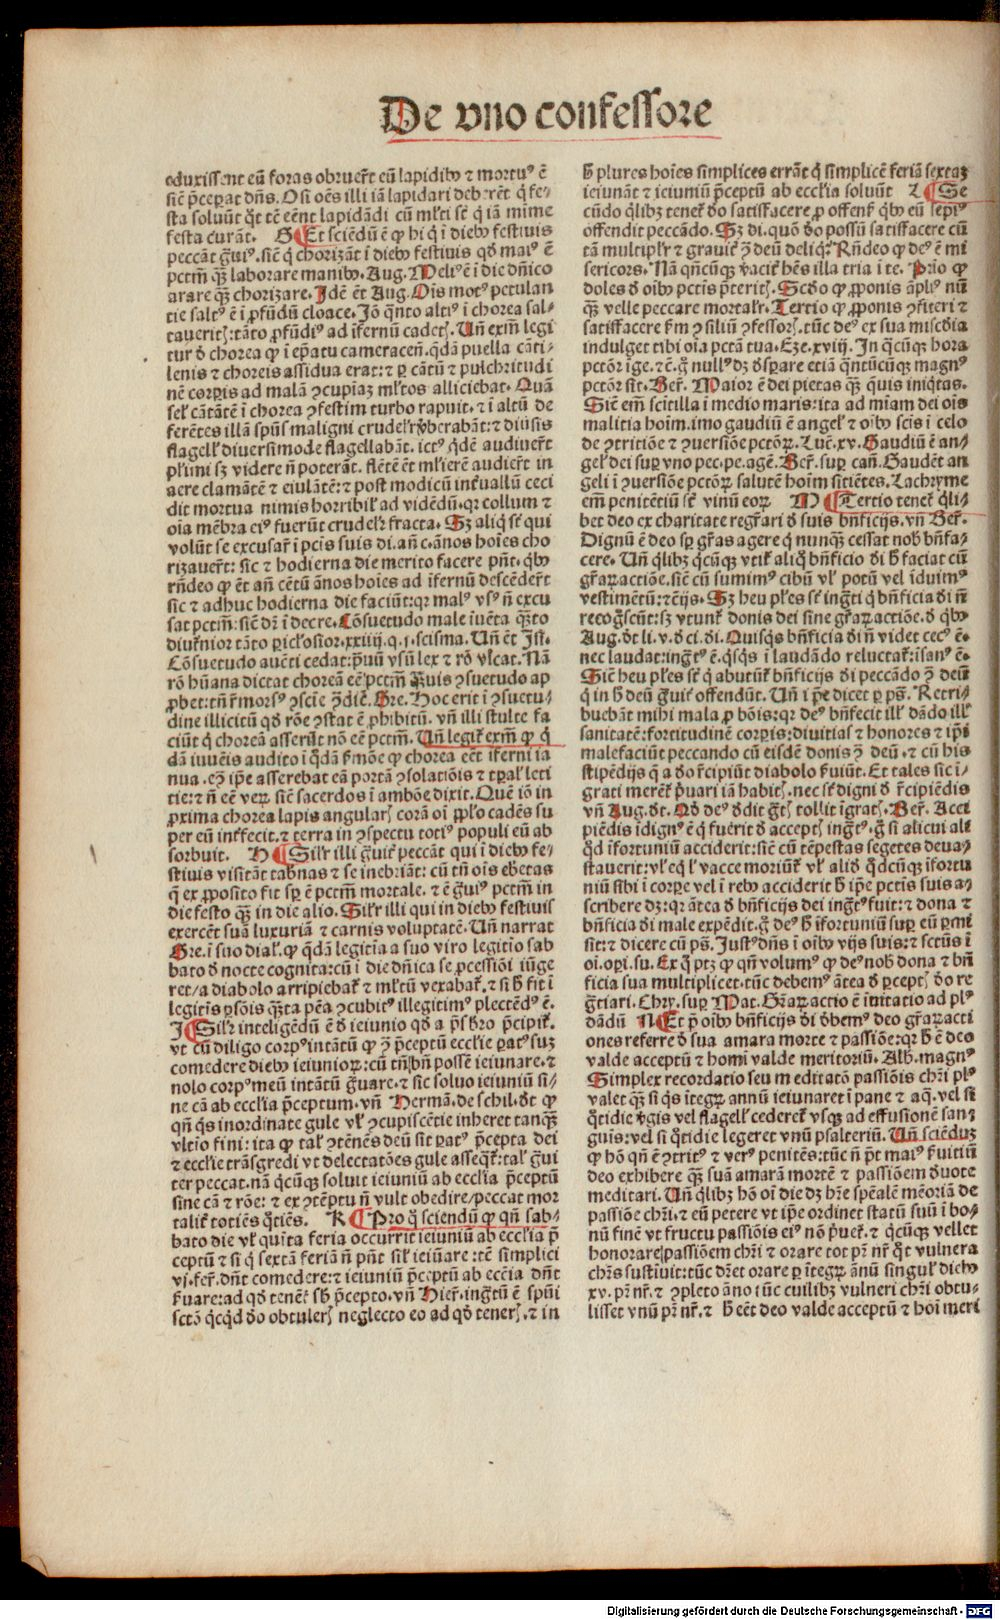 De vno confessore
eduxissent eū foras obruer̄t eū lapidibꝰ ⁊ mortuꝰ ē
sic̄ p̄ceꝑat dn̄s. O si oēs illi iā lapidari deberēt q̇ fe-
sta soluūt q̇t tē eēnt lapidādi cū ml̄ti st̄ q̇ iā mime
festa curāt. G ¶ Et sciendū ē ꝙ hi q̇ ī diebꝰ festiuis
peccāt g̊uiꝰ. sic̄ q̇ chorizāt ī diebꝰ festiuis qd̄ maiꝰ ē
pctm̄ qꝫ laborare manibꝰ. Aug. Meliꝰ ē ī die dn̄ico
arare qꝫ chorizare. Idē ēt Aug. Oīs motꝰ petulan
tie saltꝰ ē ī ꝓfūdū cloace. Iō q̄nto altiꝰ ī chorea sal-
taueritis: tāto ꝓfūdiꝰ ad īfernū cadetis. Vn̄ exm̄ legi
tur d̄ chorea ꝙ ī ep̄atu cameraceñ. q̇dā puella cāti-
lenis ⁊ choreis assidua erat: ⁊ ꝑ cātū ⁊ pulchritudi
nē corꝑis ad malā ꝯcupiaꝫ ml̄tos alliciebat. Quā
sel̄ cātātē ī chorea ꝯfestim turbo rapuit. ⁊ ī altū de
ferētes illā sp̄us maligni crudelr̄ v̄berabāt: ⁊ diusis
flagell̄ diuersimode flagellabāt. ictꝰ q̇dē audiuer̄t
pl̄imi sꝫ videre n̄ poterāt. flētē ēt ml̄ierē audier̄t in
aere clamātē ⁊ eiulātē: ⁊ post modicū int̄uallū ceci
dit mortua nimis horribil̄ ad vidēdū. qꝛ collum ⁊
oīa mēbra eiꝰ fuerūt crudelr̄ fracta. Sꝫ aliq̇ st̄ qui
volūt se excusar̄ ī pcīs suis di. añ c. ānos hoīes cho
rizauer̄t: sic ⁊ hodierna die merito facere pn̄t. q̇bꝰ
rn̄deo ꝙ ēt añ cētū ānos hoīes ad īfernū descēder̄t
sic ⁊ adhuc hodierna die faciūt: qꝛ malꝰ vsꝰ n̄ excu
sat pctm̄: sic̄ dꝛ ī decre. Cōsuetudo male iuēta q̄ꝫto
diuͭnior tāto ꝑicl̄osior. xxiiij. q. j. scisma. Vn̄ ēt Isi.
Cōsuetudo aucti cedat: p̄uū vsū lex ⁊ rō vīcat. Nā
rō hūana dictat choreā eē pctm̄ Ruis ꝯsuetudo ap
ꝓbet: tn̄ r̄morsꝰ ꝯsciē ꝯ̄dic̄. Gre. Hoc erit ī ꝯsuetu-
dine illicitū qd̄ rōe ꝯstat ē ꝓhibitū. vn̄ illi stulte fa
ciūt q̇ choreā asserūt nō eē pctm̄. Vn̄ legit̄ exm̄ ꝙ q̇
dā iuuēis audito ī q̇dā ẜmōe ꝙ chorea eēt īferni ia
nua. eꝫ ip̄e asserebat eā portā ꝯsolatiōis ⁊ tꝑal̄ leti
tie: ⁊ n̄ eē veꝝ sic̄ sacerdos ī ambōe dixit. Quē iō in
ꝓxima chorea lapis angularis corā oī ꝓplo cadēs su
per eū int̄fecit. ⁊ terra in ꝯspectu totiꝰ populi eū ab
sorbuit. H ¶ Silr̄ illi g̊uit̄ peccāt qui ī diebꝰ fe-
stiuis visitāt tab̄nas ⁊ se inebriāt: cū tn̄ oīs eb̄etas
q̄ ex ꝓposito fit sp̄ ē pctm̄ mortale. ⁊ ē g̊uiꝰ pctm̄ in
die festo qꝫ in die alio. Silr̄ illi qui in diebꝰ festiuis
exercēt suā luxuriā ⁊ carnis voluptatē. Vn̄ narrat
Gre. ī suo dial̄. ꝙ q̇dā legitīa a suo viro legitio sab
bato d̄ nocte cognita: cū ī die dn̄ica se ꝓcessiōi iūge
ret / a diabolo arripiebat̄ ⁊ ml̄tū vexabat̄. ⁊ si h̄ fit ī
legitīs ꝑsōis q̄ꝫta pēa ꝯcubitꝰ illegitimꝰ plectēdꝰ ē.
I ¶ Silr̄ inteligēdū ē d̄ ieiunio qd̄ a p̄sbr̄o p̄cipit̄.
vt cū diligo corpꝰ intātū ꝙ ꝯ̄ p̄ceptū ecclīe ꝑatꝰ suꝫ
comedere diebꝰ ieiunioꝝ: cū tn̄ bn̄ possē ieiunare. ⁊
nolo corpꝰ meū intātū g̊uare. ⁊ sic soluo ieiuniū si-
ne cā ab ecclīa p̄ceptum. vn̄ Hermā. de schil. dt̄ ꝙ
qn̄ q̇s inordinate gule vl̄ ꝯcupiscētie inheret tanqꝫ
vltīo fini: ita ꝙ tal̄ ꝯtēnēs deū sit ꝑatꝰ p̄cepta dei
⁊ ecclīe trāsgredi vt delectatōes gule asseq̇t̄: tal̄ g̊ui
ter peccat. nā q̇cūqꝫ soluit ieiuniū ab ecclīa p̄ceptū
sine cā ⁊ rōe: ⁊ ex ꝯtēptu n̄ vult obedire / peccat mor
talit̄ totiēs q̇tiēs. K ¶ Pro q̊ sciendū ꝙ qn̄ sab-
bato die vl̄ quīta feria occurrit ieiuniū ab ecclīa p̄
ceptū ⁊ si q̇ sextā feriā n̄ pn̄t sil̄ ieiūare: tē simplici
vj. fer̄. dn̄t comedere: ⁊ ieiuniū p̄ceptū ab eccīa dn̄t
ẜuare: ad qd̄ tenēt̄ sb̄ p̄cepto. vn̄ Hier̄. ingtū ē spūi
sctō q̇cqd̄ d̄o obtuleris neglecto eo ad qd̄ teneris. ⁊ in
h̄ plures hoīes simplices errāt q̇ simplicē feriā sextaꝫ
ieiunāt ⁊ ieiuniū p̄ceptū ab ecclīa soluūt L ¶ Se
cūdo q̇libꝫ tenet̄ d̄o satisfacere ꝓ offens̄ q̇bꝰ eū sepiꝰ
offendit peccādo. Sꝫ di. quō d̄o possū satisfacere cū
tā multiplr̄ ⁊ grauit̄ ꝯ̄ deū deliq̇: Rn̄deo ꝙ deꝰ ē mi
sericors. Nā qn̄cūqꝫ v̄acit̄ hēs illa tria ī te. Prīo ꝙ
doles d̄ oībꝰ pctīs p̄teritis. Scd̄o ꝙ ꝓponis āpliꝰ nū
qꝫ velle peccare mortalr̄. Tertio ꝙ ꝓponis ꝯfiteri ⁊
satisfacere ẜm ꝯsiliū ꝯfessoris. tūc deꝰ ex sua miscd̄ia
indulget tibi oīa pctā tua. Eze. xviij. In q̇cūqꝫ hora
pctōr īge. ⁊ c̄. g̊ nullꝰ dꝫ d̄sꝑare etiā q̄ntūcūqꝫ magnꝰ
pctōr sit. Ber̄. Maior ē dei pietas qꝫ q̇uis iniq̇tas.
Sic̄ em̄ scītilla ī medio maris: ita ad miam dei oīs
malitia hoīm. īmo gaudiū ē angel̄ ⁊ oībꝰ scīs ī celo
de ꝯtritiōe ⁊ ꝯuersiōe pctōꝝ. Luc̄. xv. Gaudiū ē an-
gel̄ dei suꝑ vno pec. pe. agē. Ber̄. suꝑ cañ. Gaudēt an
geli ī ꝯuersiōe pctōꝝ salutē hoīm sitiētes. Lachryme
em̄ penitētiū st̄ vinū eoꝝ M ¶ Tertio tenet̄ q̇li-
bet deo ex charitate regr̄ari d̄ suis bn̄ficijs. vn̄ Ber̄.
Dignū ē deo sꝑ gr̄as agere q̇ nunqꝫ cessat nob̄ bn̄fa-
cere. Vn̄ q̇libꝫ q̇cūqꝫ vtit̄ aliq̊ bn̄ficio di h̄ faciat cū
gr̄aꝝ actiōe. sic̄ cū sumimꝰ cibū vl̄ potū vel īduimꝰ
vestimētū: ⁊ c̄ijs. Sꝫ heu pl̄es st̄ ingr̄ti q̇ bn̄ficia d̄i n̄
recog̊scūt: sꝫ vtunt̄ donis dei sine gr̄aꝝ actiōe. d̄ q̇bꝰ
Aug. dt̄ li. v. d̄ ci. di. Quisq̇s bn̄ficia d̄i n̄ videt cecꝰ ē.
nec laudat: ingr̄tꝰ ē. q̇sq̇s ī laudādo reluctat̄: īsanꝰ ē.
Sic̄ heu pl̄es st̄ q̇ abutūt̄ bn̄ficijs d̄i peccādo ꝯ̄ deū
q̇ in h̄ deū g̊uit̄ offendūt. Vn̄ ī p̄e dicet ꝑ ps̄. Retri-
buebāt mihi mala ꝓ bōis: qꝛ deꝰ bn̄fecit ill̄ dādo ill̄
sanitatē: fortitudinē corꝑis: diuitias ⁊ honores ⁊ ip̄i
malefaciūt peccando cū eisdē donis ꝯ̄ deū. ⁊ cū his
stipēdijs q̄ a d̄o r̄cipiūt diabolo ẜuiūt. Et tales sic ī-
grati merēt̄ p̄uari iā habitis. nec st̄ digni d̄ r̄cipiēdis
vn̄ Aug. dt̄. Qd̄ deꝰ d̄dit gr̄tis tollit īgratis. Ber̄. Acci
piēdis īdignꝰ ē q̇ fuerit d̄ acceptis ingr̄tꝰ. g̊ si alicui ali
q̇d īfortuniū acciderit: sic̄ cū tēpestas segetes deua-
stauerit: vl̄ eq̇ l̄ vacce moriūt̄ vl̄ aliđ q̇dcūqꝫ īfortu
niū sibi ī corꝑe vel ī rebꝰ acciderit h̄ ip̄e pctīs suis a-
scribere dꝫ: qꝛ ātea d̄ bn̄ficijs dei ingr̄tꝰ fuit: ⁊ dona ⁊
bn̄ficia d̄i male expēdit. g̊ deꝰ h̄ īfortuniū suꝑ eū ꝑmi
sit: ⁊ dicere cū ps̄. Justꝰ dn̄s ī oībꝰ vijs suis: ⁊ sctūs ī
oī. oꝑi. su. Ex q̊ ptꝫ ꝙ qn̄ volumꝰ ꝙ deꝰ nob̄ dona ⁊ bn̄
ficia sua multiplicet. tūc debemꝰ ātea d̄ ꝑceptis d̄o re
gr̄tiari. Chry. suꝑ Mat. Gr̄aꝝ actio ē inuitatio ad plꝰ
dādū N ¶ Et p̄ oībꝰ bn̄ficijs d̄i d̄bemꝰ deo gr̄aꝝ acti
ones referre d̄ sua amara morte ⁊ passiōe: qꝛ h̄ ē deo
valde acceptū ⁊ homī valde meritoriū. Alb̄. magnꝰ
Simplex recordatio seu meditatō passiōis chr̄i plꝰ
valet qꝫ si q̇s ītegꝝ annū ieiunaret ī pane ⁊ aq̄. vel si
q̇tidie v̄gis vel flagell̄ cederet̄ vsqꝫ ad effusionē san-
guis: vel si q̇tidie legeret vnū psalteriū. Vn̄ sciēduꝫ
ꝙ hō qn̄ ē ꝯtritꝰ ⁊ verꝰ penitēs: tūc n̄ p̄t maiꝰ ẜuitiū
deo exhibere qꝫ suā amarā mortē ⁊ passiōem d̄uote
meditari. Vn̄ q̇libꝫ hō oī die dꝫ hr̄e spēalē mēoriā de
passiōe chr̄i. ⁊ eū petere vt ip̄e ordinet statū suū ī bo-
nū finē vt fructu passiōis eiꝰ nō p̄uet̄. ⁊ q̇cūqꝫ vellet
honorare passiōem chr̄i ⁊ orare tot pr̄ nr̄. q̇t vulnera
chr̄s sustīuit: tūc dr̄et orare ꝑ ītegꝝ ānū singul̄ diebꝰ
xv. pr̄ nr̄. ⁊ ꝯpleto āno tūc cuilibꝫ vulneri chr̄i obtu-
lisset vnū pr̄ nr̄. ⁊ h̄ eēt deo valde acceptū ⁊ hoī meri
Digitalisierung gefördert durch die Deutsche Forschungsgemeinschaft - DFG